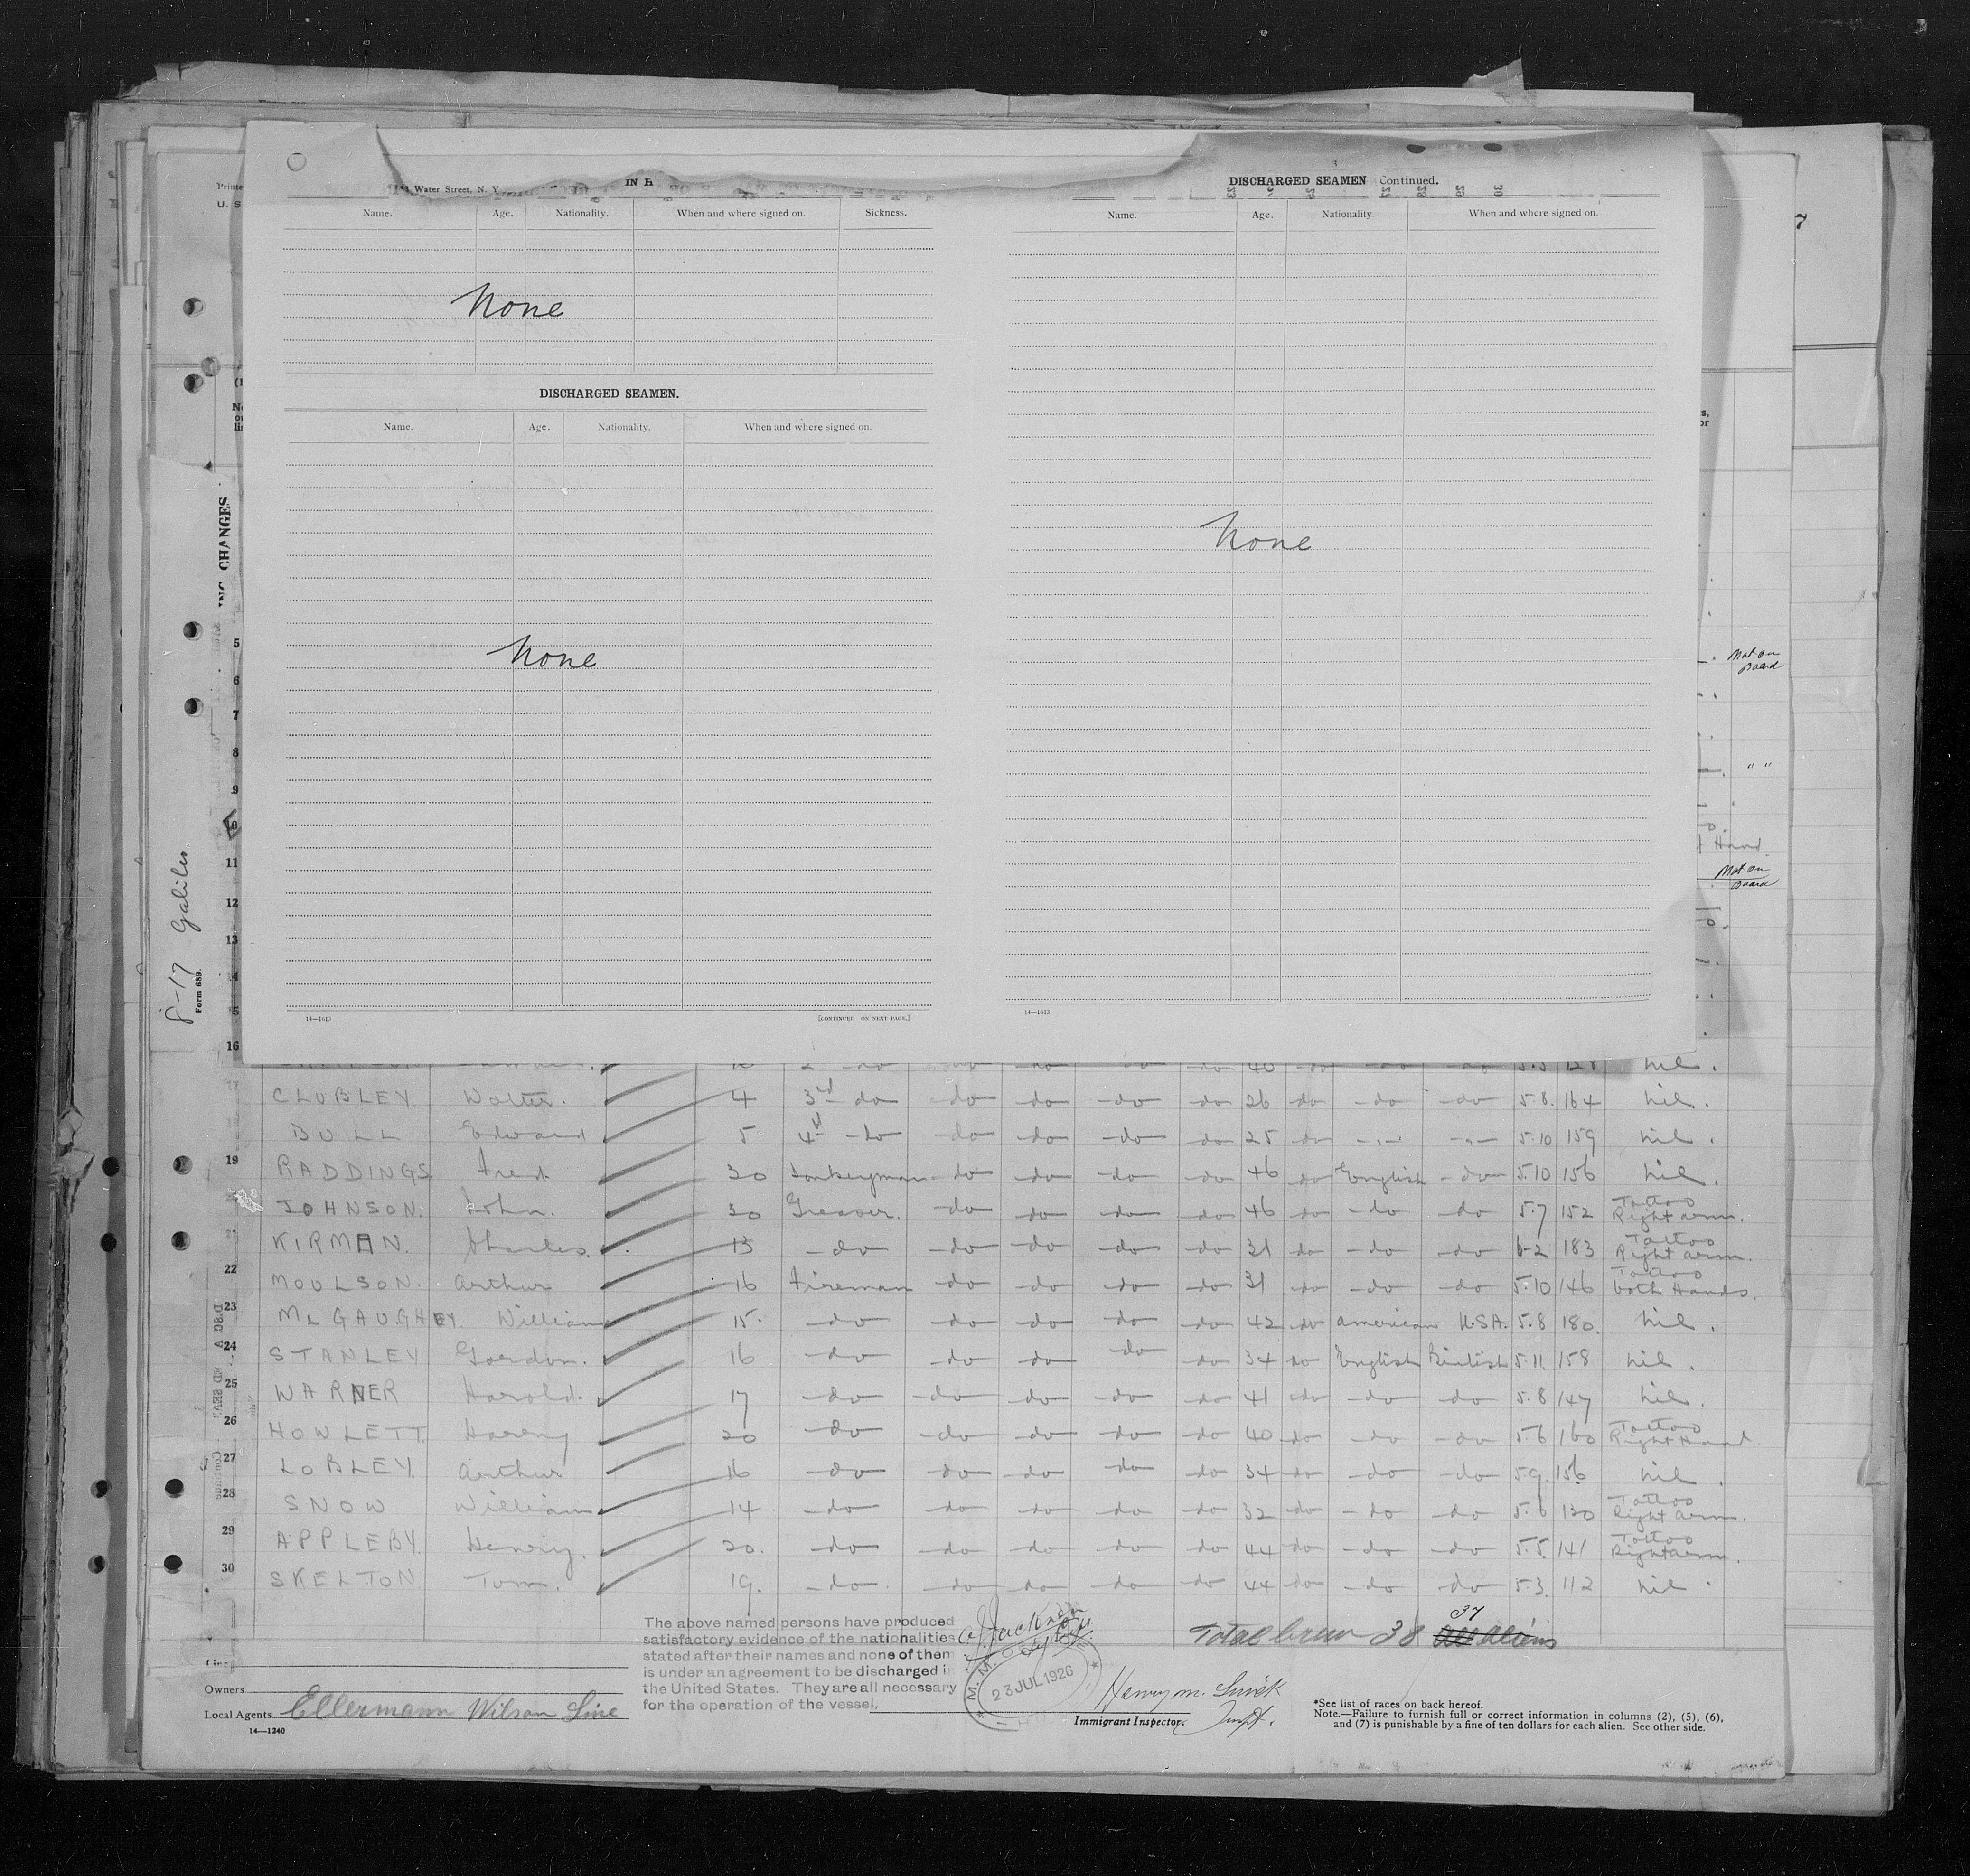 Water Street, N. Y.
IN
Name. Age. Nationality. When and where signed on. Sickness.
None
DISCHARGED SEAMEN.
Name. Age. Nationality. When and where signed on.
None
14—1613 [CONTINUED ON NEXT PAGE.]
3
DISCHARGED SEAMEN Continued.
Name. Age. Nationality. When and where signed on.
None
14—1613
Printe
U. S
ING CHANGES
8-17 Galileo
Form 689.
5
6
7
8
9
10
11
12
13
14
5
16
7
Not on
Board
" "
Hand.
Not on
Board
nil.
17 CLUBLEY Walter. 4 3rd do do do do do 26 do do do 5.8. 164 nil.
18 BULL Edward 5 4th do do do do do 25 do -"- -"- 5.10 159 nil.
19 RADDINGS Fred. 20 Donkeyman do do do do 46 do English do 5.10 156 nil.
JOHNSON. John. 30 Greaser. do do do do 46 do do do 5.7 152 Tattoo Right arm.
21 KIRMAN. Charles. 13 do do do do do 31 do do do 6-2 183 Tattoo Right arm.
22 MOULSON. Arthur 16 Fireman do do do do 31 do do do 5.10 146 Tattoo both Hands.
23 Mc GAUGHEY. William 15. do do do do do 42 do American U.S.A. 5.8 180. nil.
24 STANLEY Gordon. 16 do do do do do 34 do English British 5.11. 158 nil.
25 WARNER Harold. 17 do do do do do 41 do do do 5.8 147 nil.
26 HOWLETT. Harry 20 do do do do do 40 do do do 5.6 160 Tattoo Right Hand
27 LOBLEY. Arthur 16 do do do do do 34 do do do 5.9. 156 nil.
28 SNOW William 14 do do do do do 32 do do do 5.6 130 Tattoo Right arm.
29 APPLEBY. Henry. 20. do do do do do 44 do do do 5.5. 141 Tattoo Right arm.
30 SKELTON Tom. 19. do do do do do 44 do do do 5.3. 112 nil.
The above named persons have produced
satisfactory evidence of the nationalities
stated after their names and none of them
is under an agreement to be discharged in
the United States. They are all necessary
for the operation of the vessel.
23 JUL 1926
37
Total crew 38 All aliens
Line
Owners
Local Agents Ellermann Wilson Line
14—1240
Henry M.
Immigrant Inspector.
*See list of races on back hereof.
Note.—Failure to furnish full or correct information in columns (2), (5), (6),
and (7) is punishable by a fine of ten dollars for each alien. See other side.